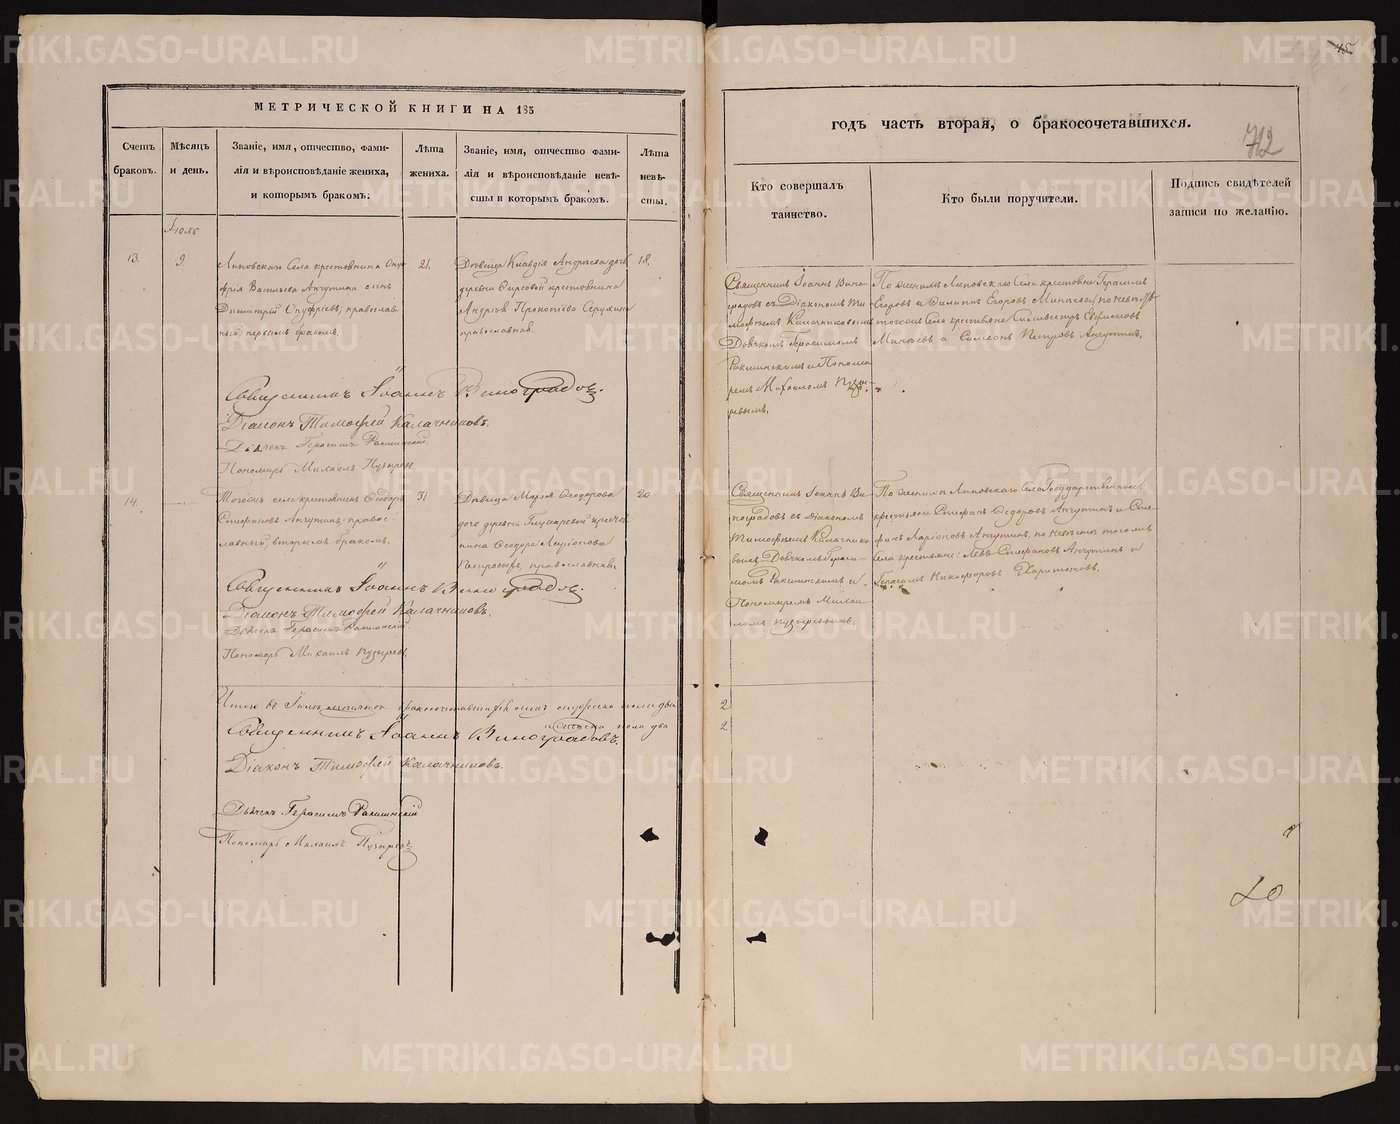 МЕТРИЧЕСКОЙ КНИГИ НА 185
Счетъ браковъ.
Мѣсяцъ и день.
Званіе, имя, отчество, фами-
лія и вѣроисповѣданіе жениха,
и которымъ бракомъ.
Лѣта
жениха.
Званіе, имя, отчество фами-
лія и вѣроисповѣданіе невѣ-
сты и которымъ бракомъ.
Лѣта
невѣ-
сты.
Іюль
13.
9.
Липовскаго Села крестьянина Ону-
фрія Васильева Анчутина сынъ
Димитрій Онуфріевъ, православ-
ный первымъ бракомъ.
21.
Дѣвица Клавдія Андреева дочь
деревни Фирсовой крестьянина
Андрея Прокопіева
православная.
18.
Священникъ Іоаннъ Виноградовъ.
Діаконъ Тимофей Калачниковъ.
Дьячекъ Герасимъ Ракшинскій
Пономарь Михаилъ Пузыревъ
14.
Тогожъ села крестьянинъ Феодоръ
Стефановъ Анчутинъ, правос-
лавный вторымъ бракомъ.
31
Дѣвица Марія Феодорова
дочь деревни крестья-
нина Феодора
православная.
20
Священникъ Іоаннъ Виноградовъ.
Діаконъ Тимофей Калачниковъ.
Дьячекъ Герасимъ Ракшинскій
Пономарь Михаилъ Пузыревъ.
Итого въ Іюлѣ бракосочетавшихся мужеска пола два 2
и женска пола два 2
Священникъ Іоаннъ Виноградовъ.
Діаконъ Тимофей Калачниковъ.
Дьячекъ Герасимъ Ракшинскій
Пономарь Михаилъ Пузыревъ
45
годъ часть вторая, о бракосочетавшихся.
712
Кто совершалъ
таинство.
Кто были поручители.
Подпись свидѣтелей
записи по желанію.
Священникъ Іоаннъ Вино-
градовъ съ Діакономъ Ти-
мофеемъ Калачниковымъ
Дьячкомъ Герасимомъ
Ракшинскимъ и Понома-
ремъ Михаиломъ Пузы-
ревымъ.
По женихѣ Липовскаго Села крестьяне Герасимъ
Егоровъ и Филиппъ Егоровъ Минѣевы, по невѣстѣ
тогожъ Села крестьяне Силивестръ Ефимовъ
Минѣевъ и Симеонъ Петровъ Анчутинъ.
Священникъ Іоаннъ Ви-
ноградовъ съ Діакономъ
Тимофеемъ Калачнико-
вымъ, Дьячкомъ Гераси-
момъ Ракшинскимъ и
Пономаремъ Михаи-
ломъ Пузыревымъ.
По женихѣ Липовскаго Села Государственные
крестьяне Стефанъ Феодоровъ Анчутинъ и Сте-
фанъ Ларіоновъ Анчутинъ, по невѣстѣ тогожъ
села крестьяне: Левъ Стефановъ Анчутинъ и
Герасимъ Никифоровъ Харитоновъ.
METRIKI.GASO-URAL.RU